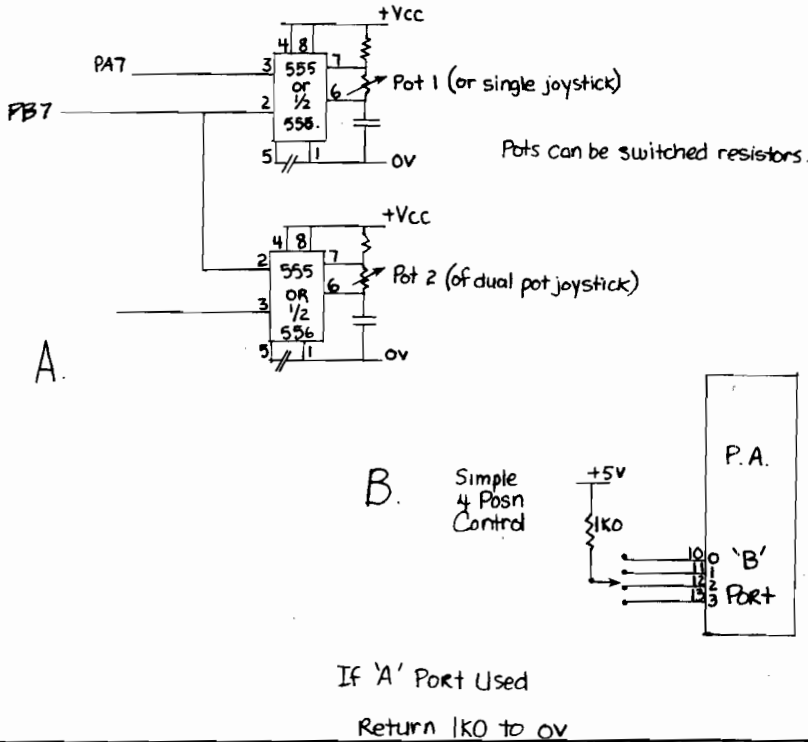 +Vcc
4 8
PA7
3
555
or
1/2
556.
7
6
Pot 1 (or single joystick)
PB7
2
5
1
0V
Pots can be switched resistors.
+Vcc
4 8
2
555
OR
1/2
556
7
6
Pot 2 (of dual pot joystick)
3
5
1
0V
A.
B.
Simple
4 Posn
Control
+5V
1K0
P.A.
10 0 'B'
11 1
12 2
13 3 Port
If 'A' Port Used
Return 1K0 to 0V